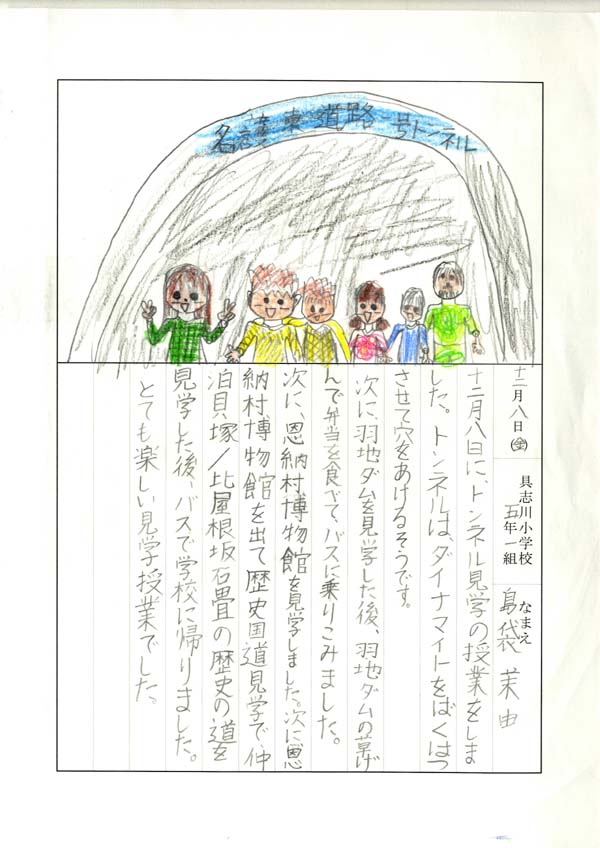 名護東道路一号トンネル
十二月八日(金)
具志川小学校
五年一組
なまえ
島袋茉由
十二月八日に、トンネル見学の授業をしま
した。トンネルは、ダイナマイトをばくはつ
させて穴をあけるそうです。
次に、羽地ダムを見学した後、羽地ダムの
んで弁当を食べて、バスに乗りこみました。
次に、恩納村博物館を見学しました。次に恩
納村博物館を出て歴史国道見学で、仲
泊貝塚/比屋根坂石畳の歴史の道を
見学した後、バスで学校に帰りました。
とても楽しい見学授業でした。